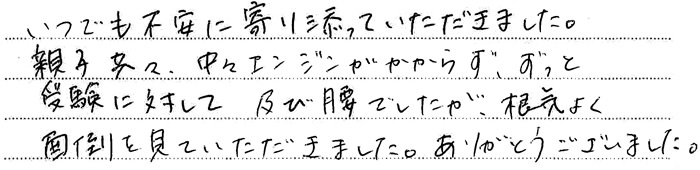 いつでも不安に寄り添っていただきました。
親子共々、中々エンジンがかからず、ずっと
受験に対して 及び腰でしたが、根気よく
面倒を見ていただきました。ありがとうございました。